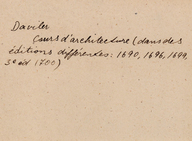 Daviler
Cours d'architecture (dans des
éditions différentes: 1690, 1696, 1699,
3e éd 1700)